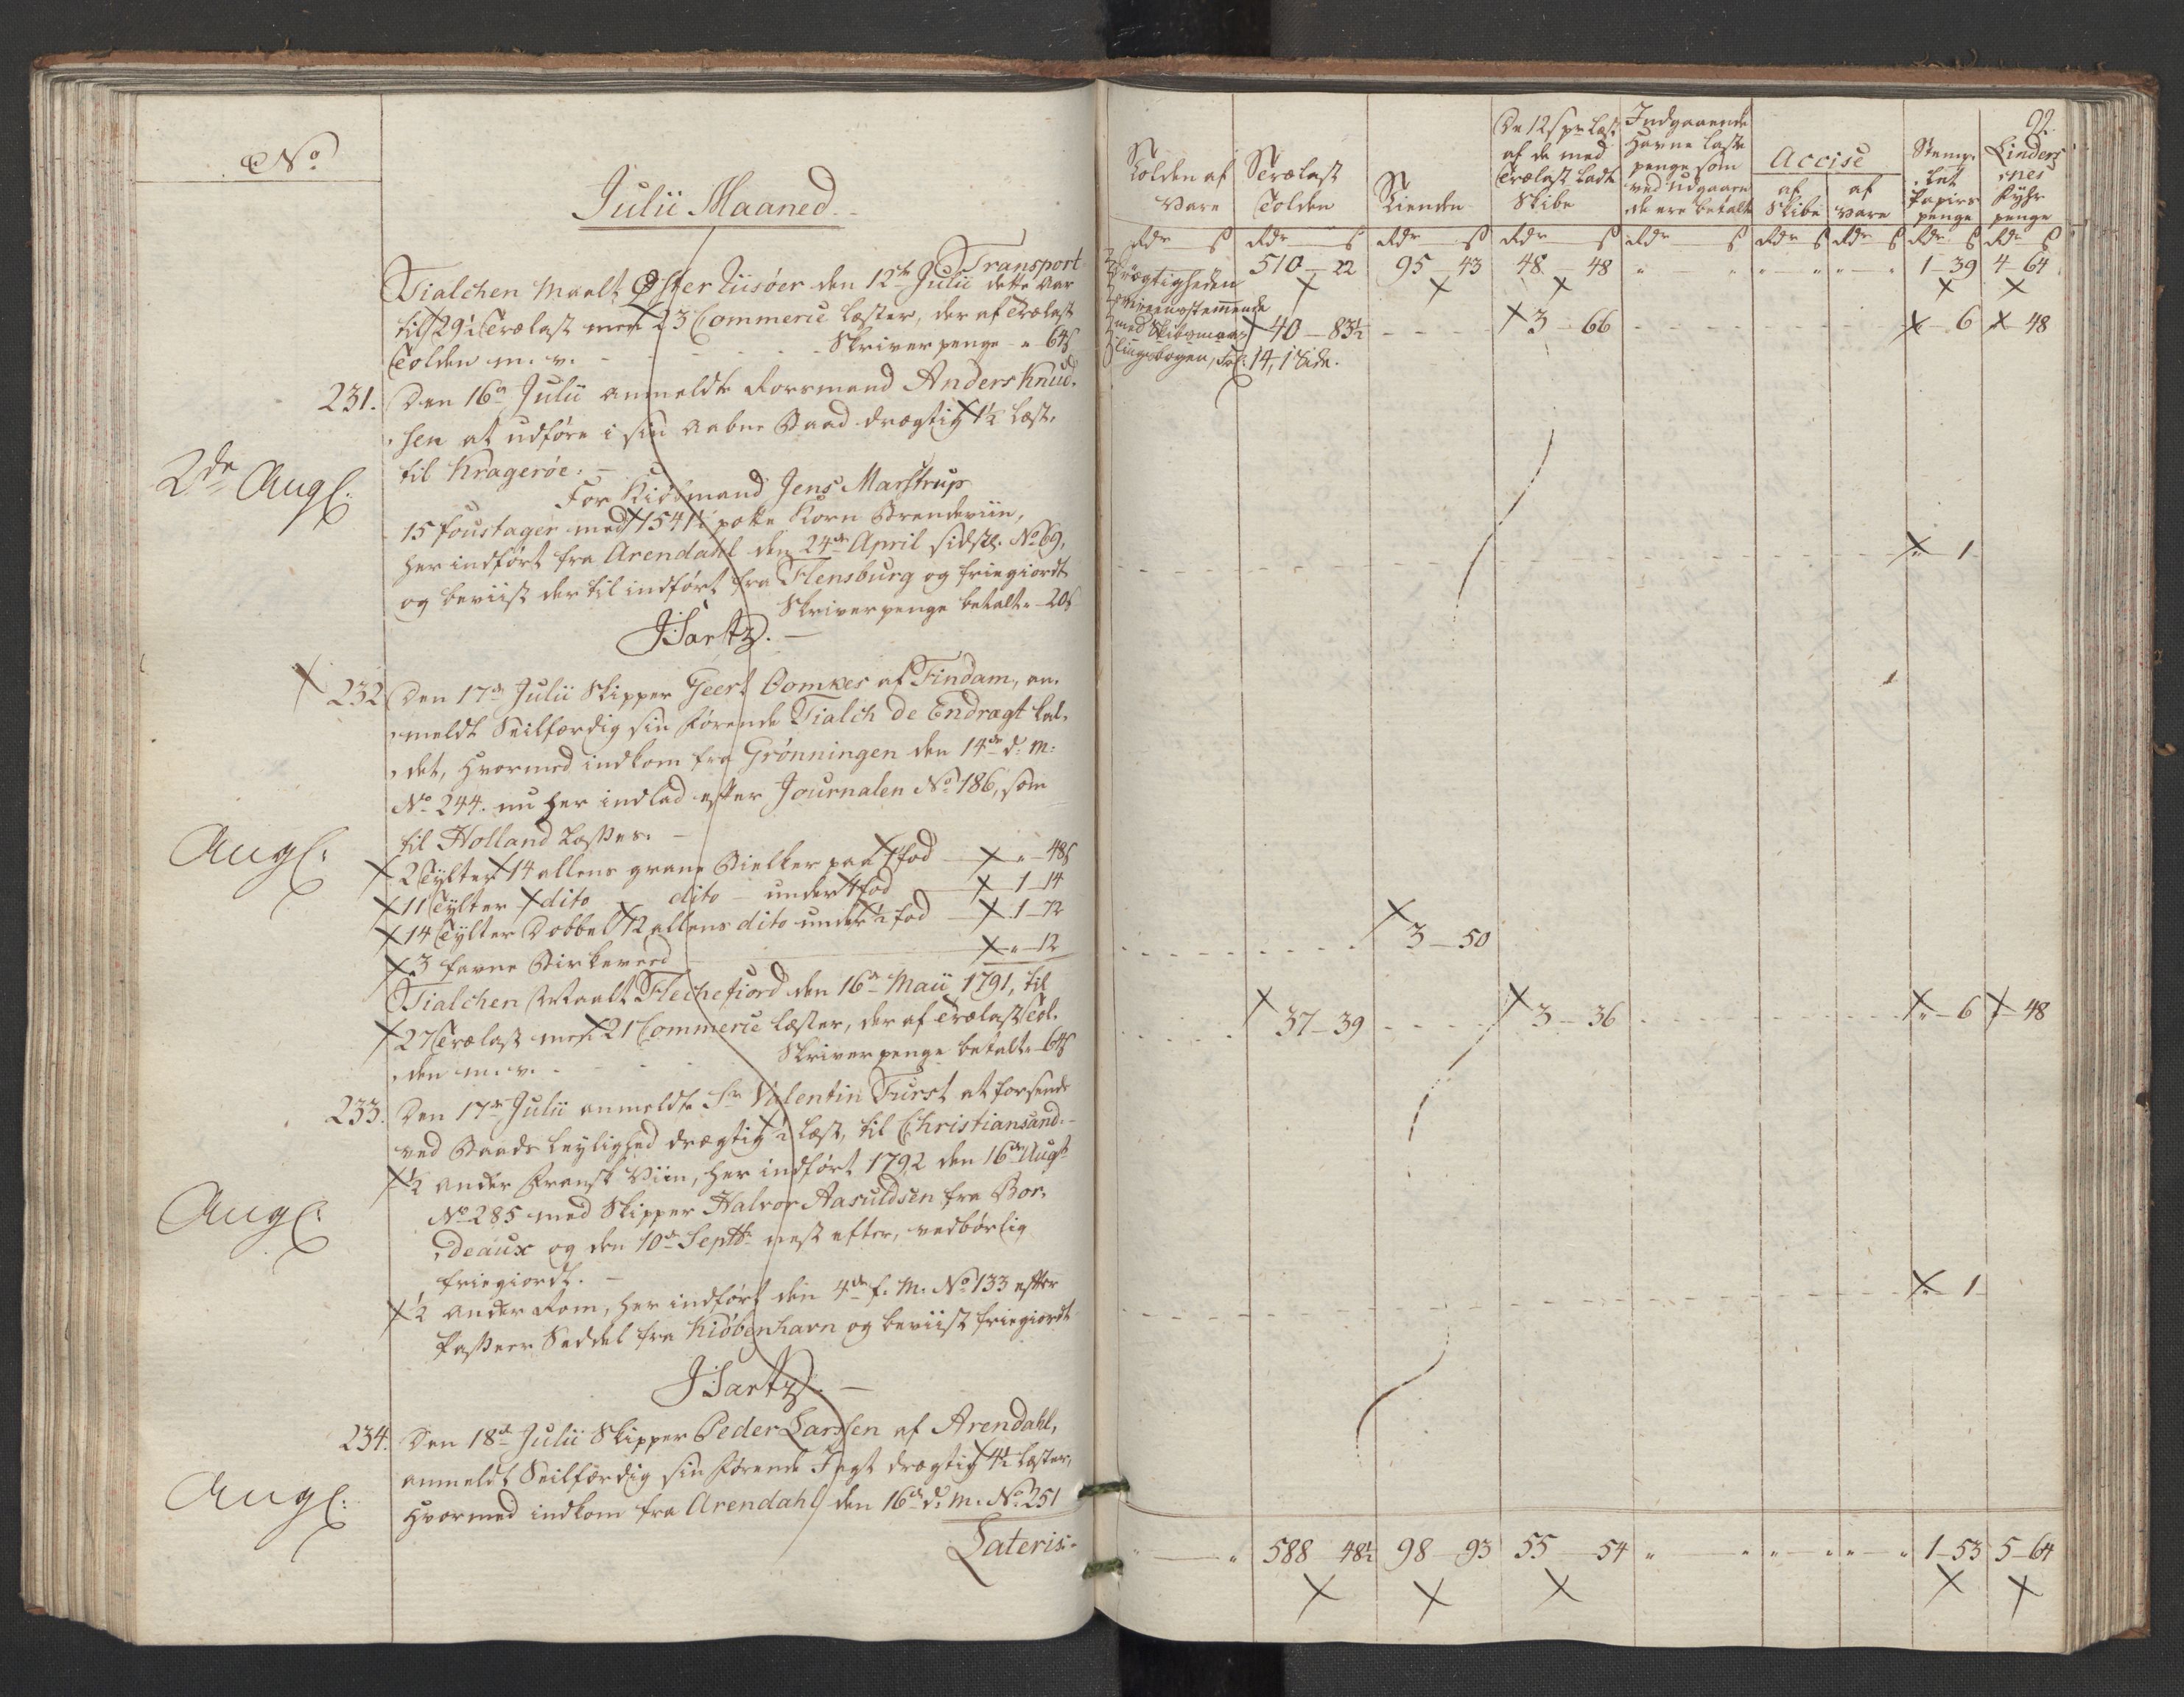 No
Julii Maaned.
Transport
Tialchen Maalt Øster Riisøer den 12te Julii dette Aar
til 29½ Trælast med 23 Commerce læster, der af Trælast
Tolden m. v. - - - Skriver penge - „ 64ß
231. Den 16de Julii anmeldte Forsmand Anders Knud-
sen at udføre i sin aabne Baad drægtig 1½ læst,
2de Ang:
til Kragerøe. -
For Kiøbmand Jens Marstrup
15 foustager med 1541½ potte Korn Brændeviin,
her indført fra Arendahl den 24de April sidstl. No 69,
og beviist der til indført fra Flensburg og friegiordt
Skriver penge betalt „ 20ß
JSartz. -
232 Den 17de Julii Skipper Geert Oomkes af Findam, an-
meldt Seilfærdig sin førende Tialch de Endragt kal-
det, hvormed indkom fra Grønningen den 14de d: M:
No 244. nu her indlad efter Journalen No 186, som
Ang:
til Holland Losses. -
2 Tylter 14 allens grane Bielker paa 1 fod - „ 48ß
11 Tylter dito dito - under 1 fod - 1 14
14 Tylter Dobbel 12 allens dito under ½ fod - 1 - 72
3 favne Birkeveed - „ - 12
Tialchen Maalt Flechefiord den 16de Maii 1791, til
27 Trælast med 21 Commerce læster, der af Trælast Tol-
den m. v. - - - Skriver penge betalt „ 64ß
233. Den 17de Julii anmeldte Sr Valentin Furst at forsende
ved Baads leylighed drægtig ½ læst, til Christiansand. -
½ anker Fransk Viin, her indført 1792 den 16de Augt
Ang:
No 285 med Skipper Halvor Aasuldsen fra Bor-
deaux og den 10de Septbr nest efter, vedbørlig
friegiordt. -
½ anker Rom, her indført den 4de f. M. No 133 efter
Passeer Seddel fra Kiøbenhavn og beviist friegiordt
JSartz. -
234. Den 18de Julii Skipper Peder Larssen af Arendahl,
anmeldt Seilfærdig sin førende Jagt drægtig 4½ læster,
Ang:
hvormed indkom fra Arendahl den 16de d: M. No 251
Lateris.
92.
Tolden af Vare
Trælast Tolden
Tienden
De 12 ß pr læst af de med Trælast ladte Skibe
Indgaaende Havne laste penge som ved udgaaende ere betalt
Accise
af Skibe
af Vare
Stemp-let Papirs penge
Linders-nes Fyhr penge
Rdr ß Rdr ß Rdr ß Rdr ß Rdr ß Rdr ß Rdr ß Rdr ß Rdr ß
510 - 22 95 - 43 48 - 48 „ „ „ „ „ „ 1 - 39 4 - 64
Drægtigheden
overeenstemmende
med Skibsmaa-
lingsbogen, Fol: 14, 1 Side.
40 - 83½ - - - 3 - 66 - - - 6 - 48
„ 1
3 - 50
37 - 39 - - - 3 - 36 - - - „ 6 - 48
„ 1
„ „ 588 48½ 98 - 93 55 - 54 „ „ „ „ „ „ 1 - 53 5 - 64